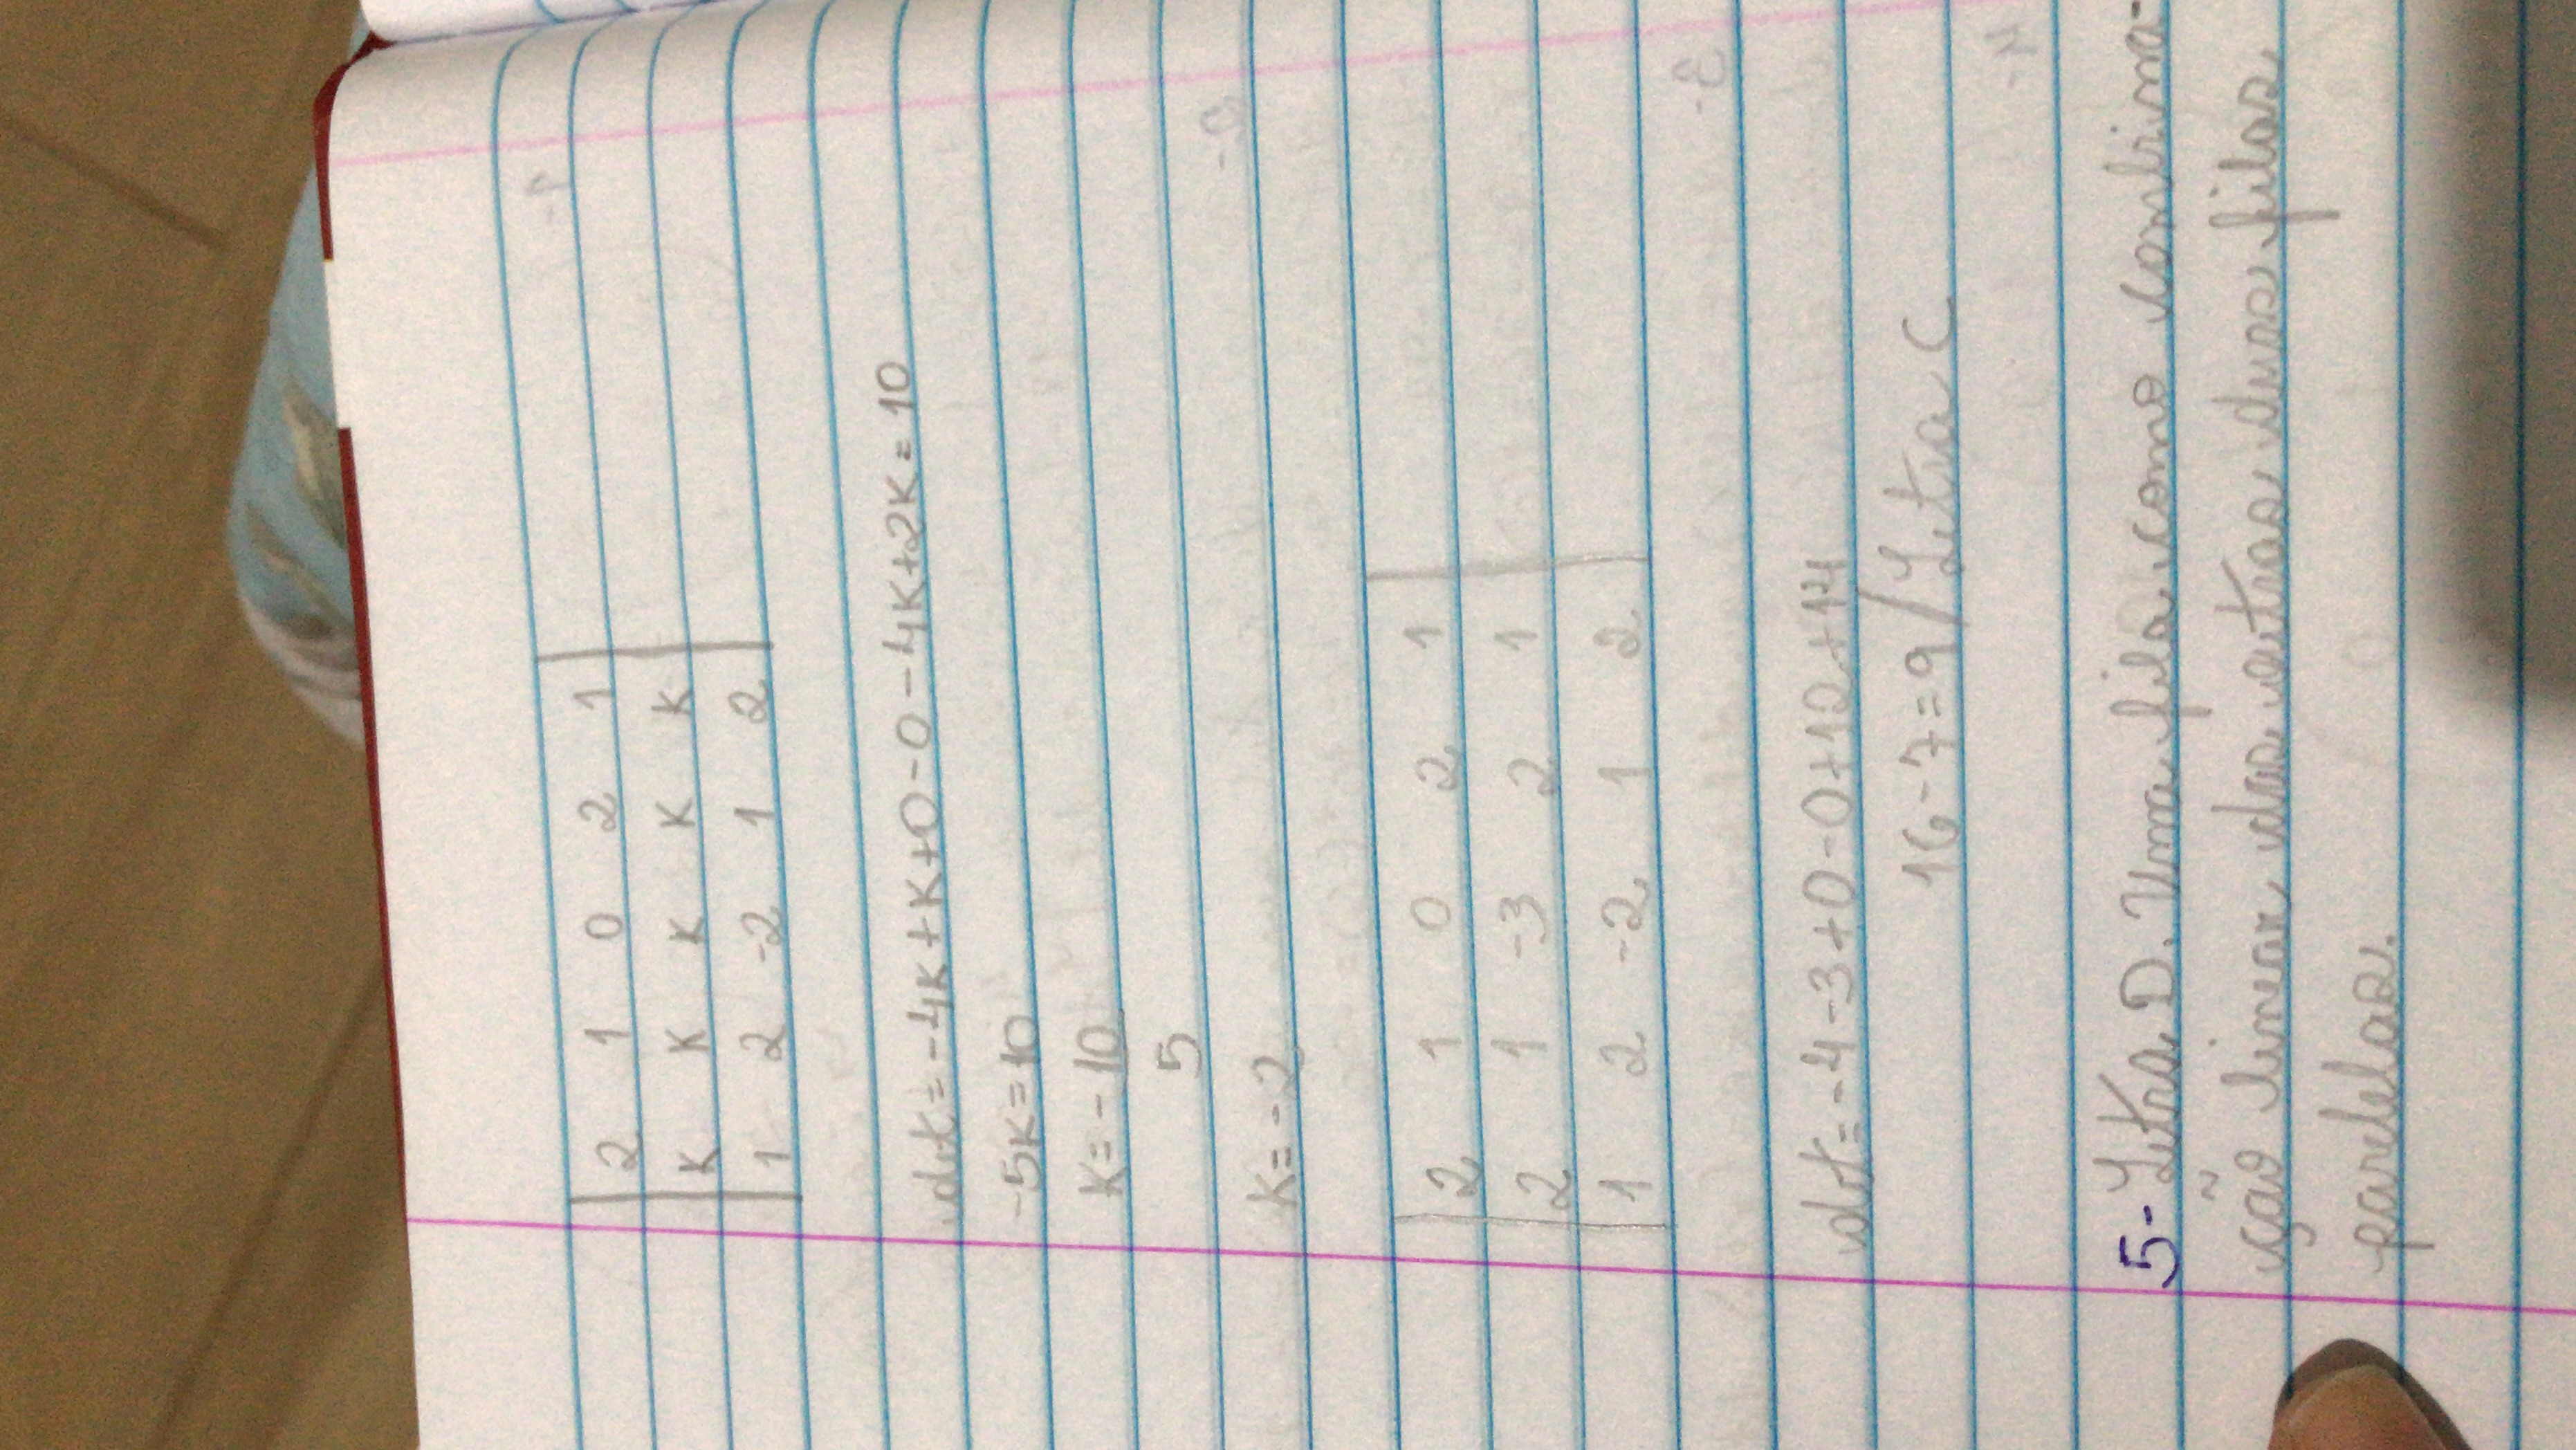 2 1 0 2 1
K K K K K
1 2 -2 1 2
det = -4K+K+0-0-4K+2K = 10
-5K=10
K= - 10
5
K= -2
2 1 0 2 1
2 1 -3 2 1
1 2 -2 1 2
det = -4-3+0-0+12+14
16-7=9/Letra C
5- Letra D. Uma fila como combina-
ção linear das outras duas filas
paralelas.